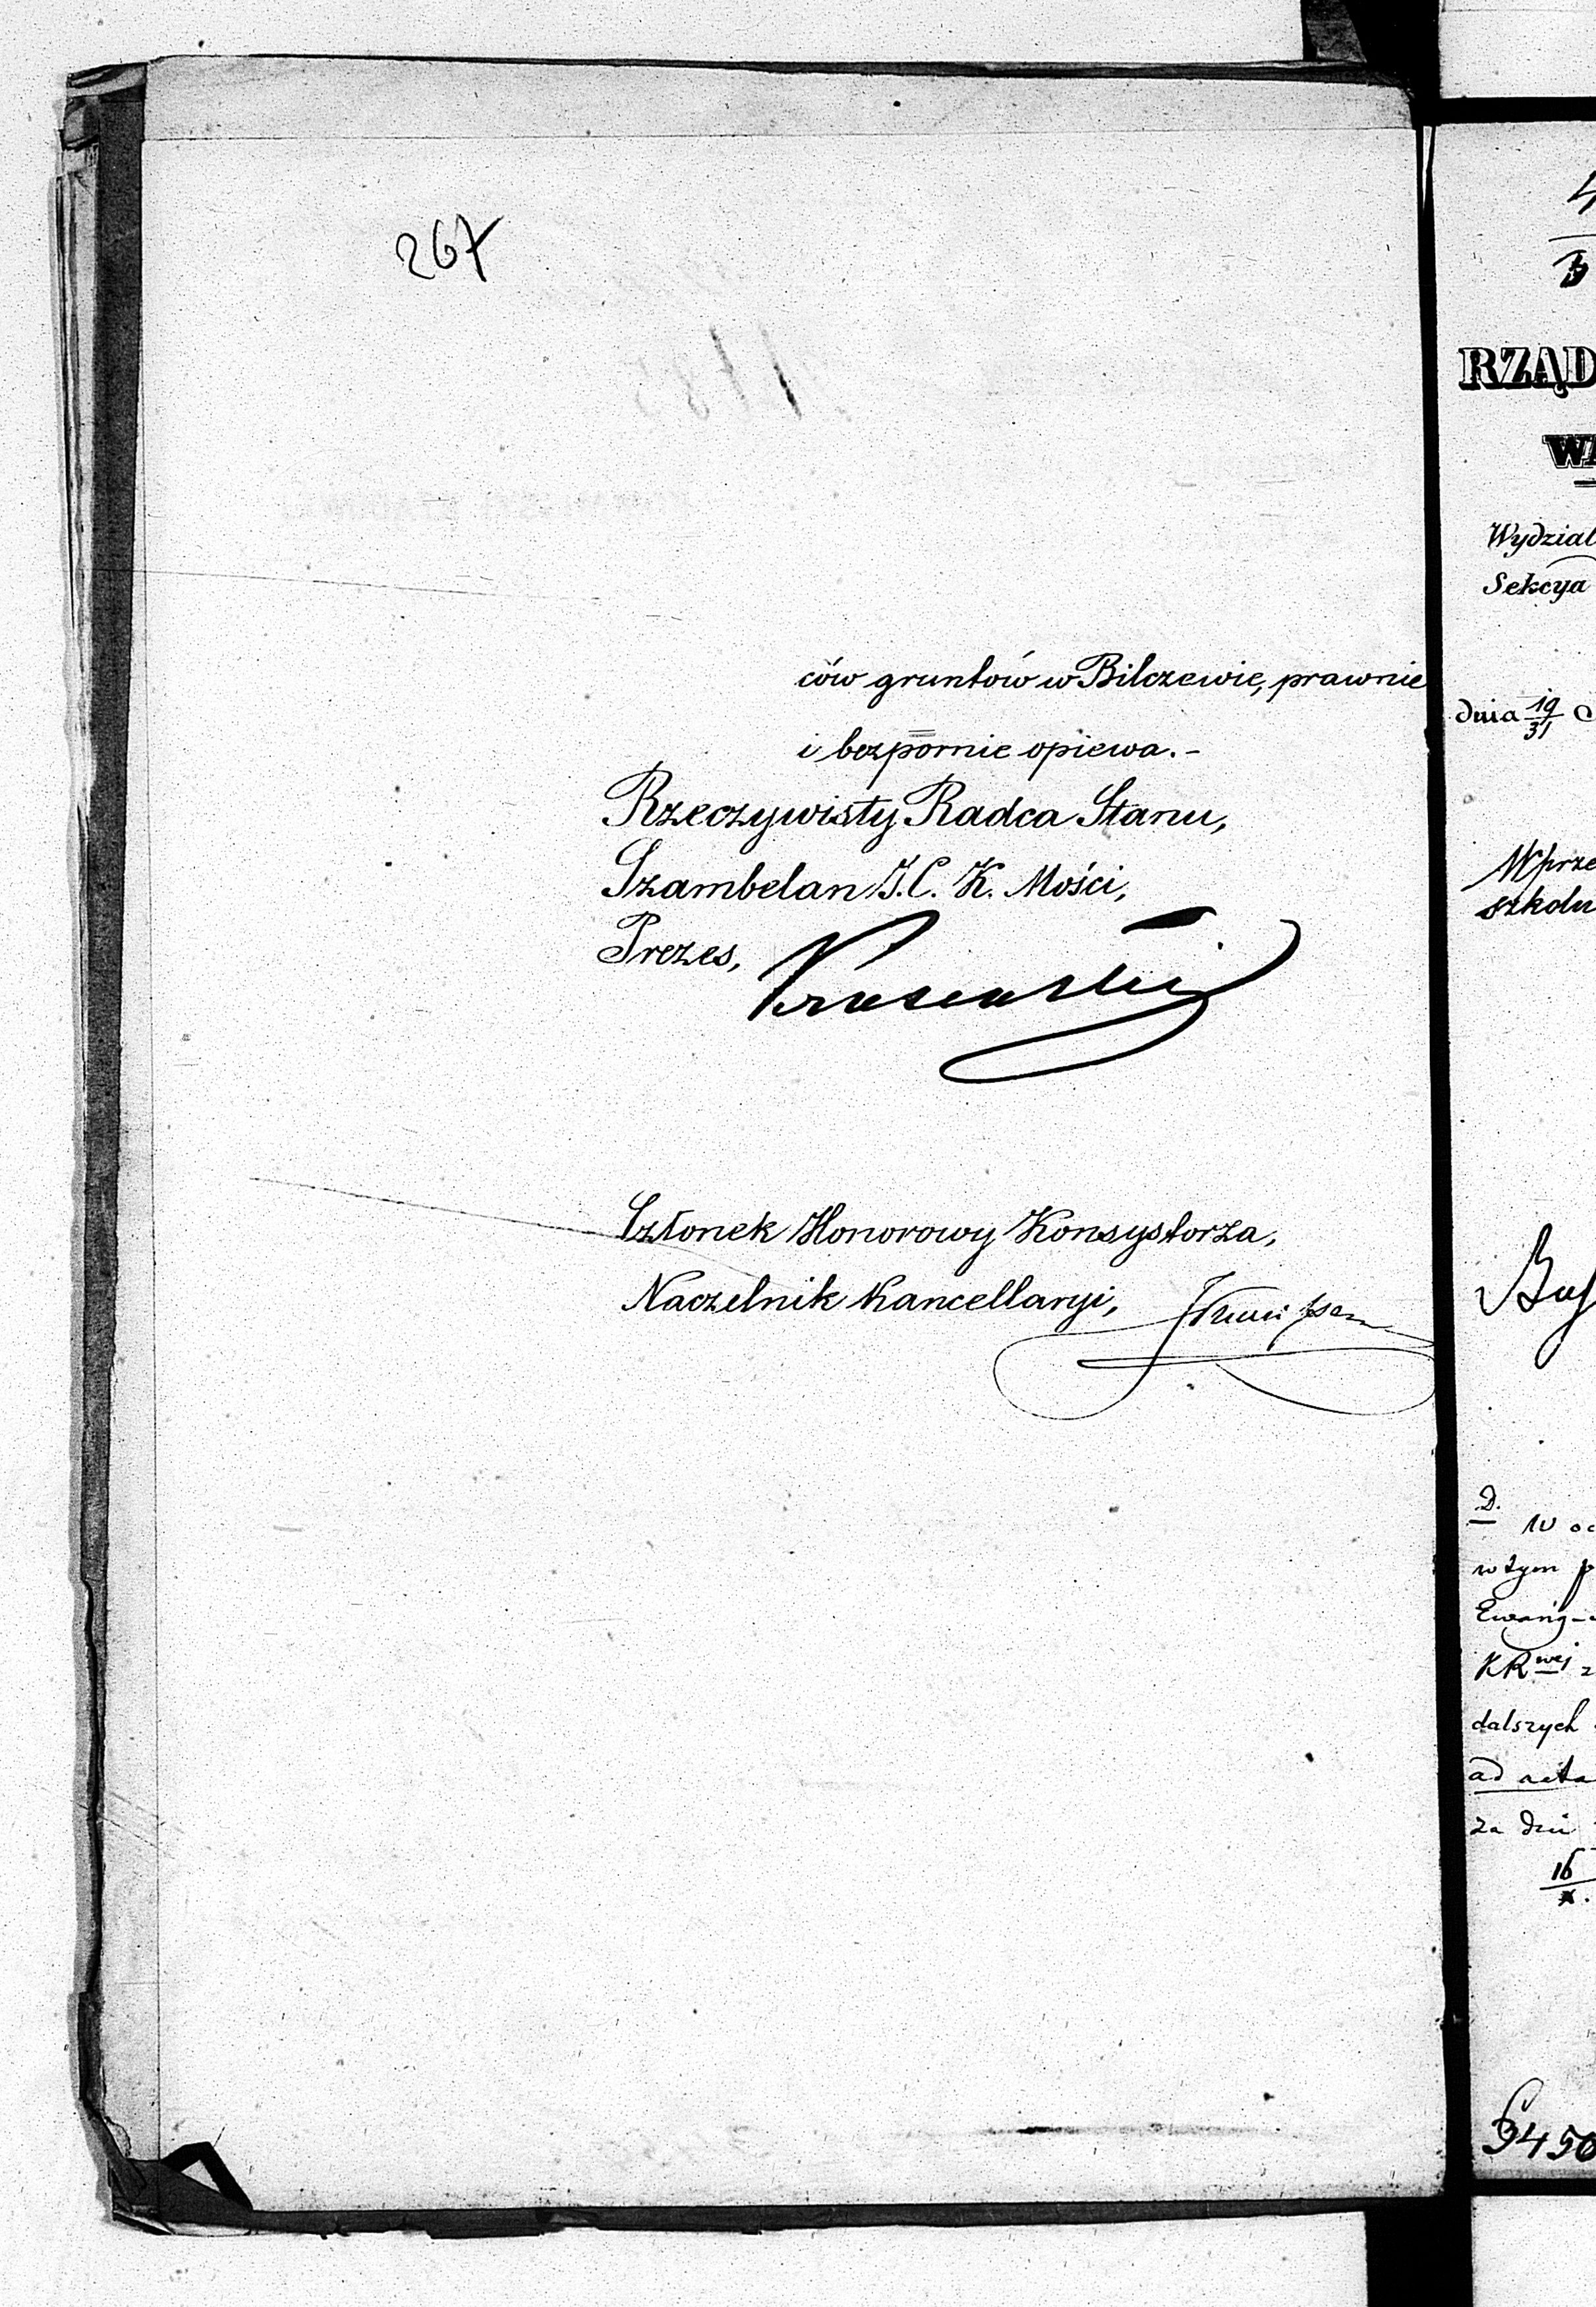 267
ców gruntów w Bilczewie, prawnie
i bezpornie opiewa.-
Rzeczywisty Radca Stanu,
Szambelan J.C.K. Mości,
Prezes,
Członek Honorowy Konsystorza,
Naczelnik Kancellaryi,
RZĄD
WA
Wydział
Sekcya
dnia 19/31
W prze
szkoln
D.
w tym p
Ewang-
KRwej z
dalszych
ad acta
za dni
16
x.